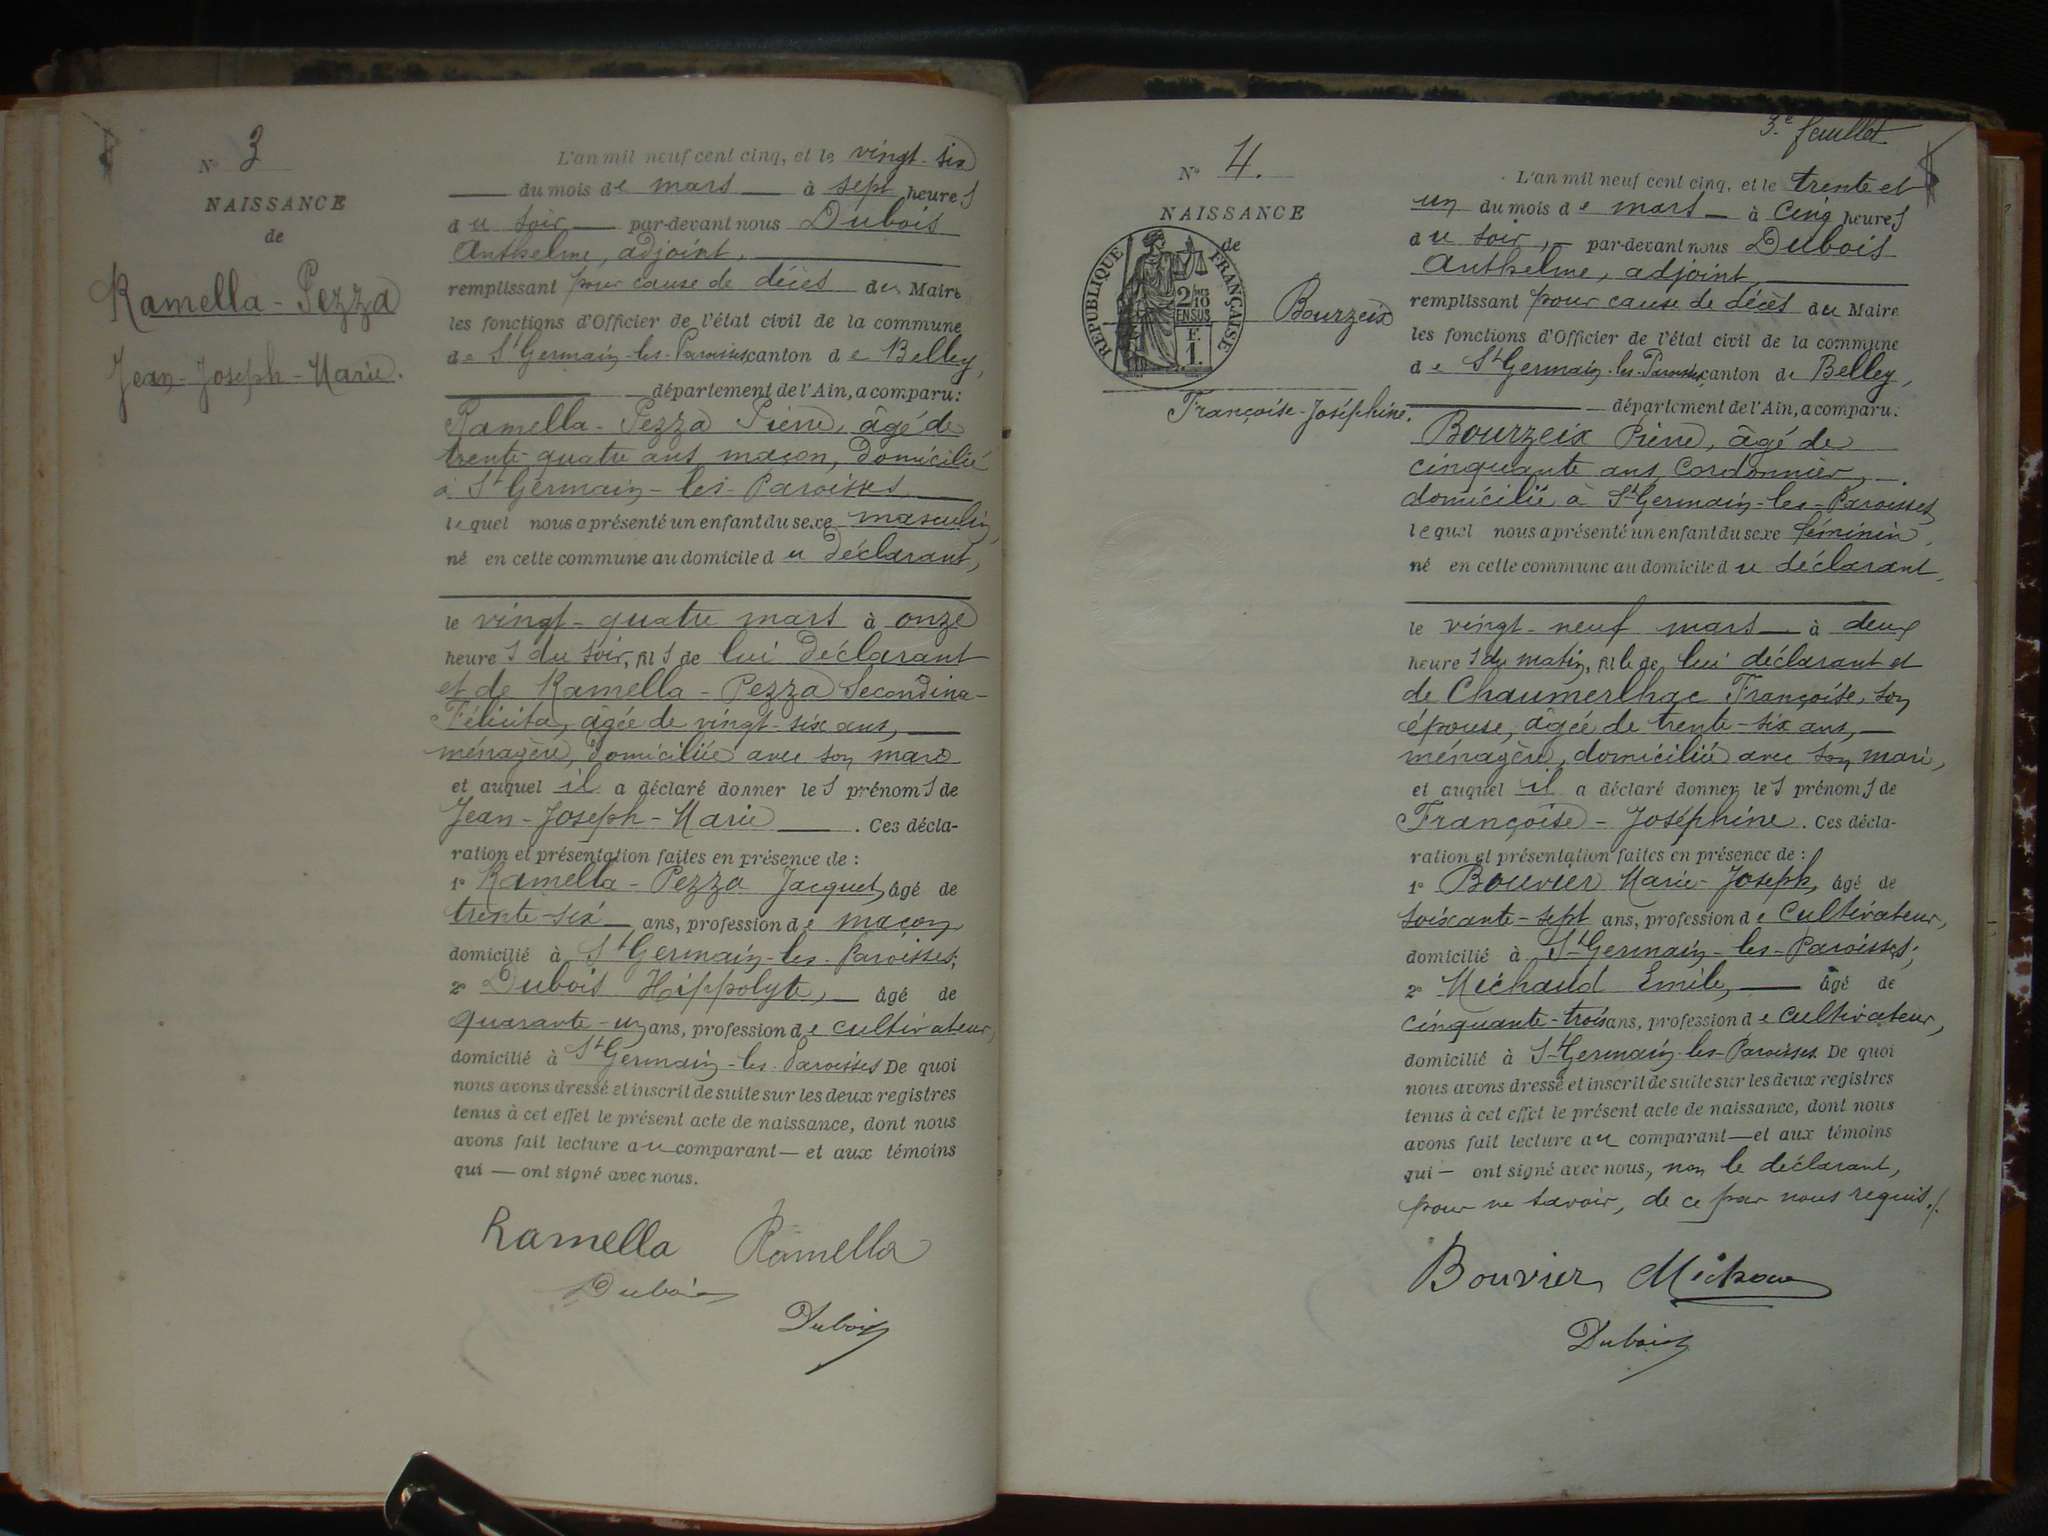 N° 3
NAISSANCE
de
Ramella-Pezza
Jean-Joseph-Marie.
L'an mil neuf cent cinq, et le vingt-six
du mois de mars à sept heures
du soir par-devant nous Dubois
Anthelme, adjoint,
remplissant pour cause de décès du Maire
les fonctions d'Officier de l'état civil de la commune
de St Germain-les-Paroisses canton de Belley,
département de l'Ain, a comparu:
Ramella-Pezza Pierre, âgé de
trente-quatre ans maçon, domicilié
à St Germain-les-Paroisses
lequel nous a présenté un enfant du sexe masculin,
né en cette commune au domicile du déclarant,
le vingt-quatre mars à onze
heures du soir, fils de lui déclarant
et de Ramella-Pezza Secondina-
Félicita, âgée de vingt-six ans,
ménagère, domiciliée avec son mari
et auquel il a déclaré donner les prénoms de
Jean-Joseph-Marie. Ces décla-
ration et présentation faites en présence de :
1° Ramella-Pezza Jacques, âgé de
trente-six ans, profession de maçon
domicilié à St Germain-les-Paroisses;
2° Dubois Hippolyte, âgé de
quarante-un ans, profession de cultivateur,
domicilié à St Germain-les-Paroisses De quoi
nous avons dressé et inscrit de suite sur les deux registres
tenus à cet effet le présent acte de naissance, dont nous
avons fait lecture au comparant — et aux témoins
qui — ont signé avec nous.
Ramella Ramella
Dubois
Dubois
3e feuillet
N° 4.
NAISSANCE
de
RÉPUBLIQUE FRANÇAISE
2/10
EN SUS
F.
1.
Bourzeix
Françoise-Joséphine.
L'an mil neuf cent cinq, et le trente et
un du mois de mars à cinq heures
du soir, par-devant nous Dubois
Anthelme, adjoint
remplissant pour cause de décès du Maire
les fonctions d'Officier de l'état civil de la commune
de St Germain-les-Paroisses canton de Belley,
département de l'Ain, a comparu:
Bourzeix Pierre, âgé de
cinquante ans, cordonnier,
domicilié à St Germain-les-Paroisses
lequel nous a présenté un enfant du sexe féminin,
né en cette commune au domicile du déclarant,
le vingt-neuf mars à deux
heures du matin, fille de lui déclarant et
de Chaumerlhac Françoise, son
épouse, âgée de trente-six ans,
ménagère, domiciliée avec son mari,
et auquel il a déclaré donner les prénoms de
Françoise-Joséphine. Ces décla-
ration et présentation faites en présence de :
1° Bouvier Marie-Joseph, âgé de
soixante-sept ans, profession de cultivateur,
domicilié à St Germain-les-Paroisses;
2° Michaud Emile, âgé de
cinquante-trois ans, profession de cultivateur,
domicilié à St Germain-les-Paroisses De quoi
nous avons dressé et inscrit de suite sur les deux registres
tenus à cet effet le présent acte de naissance, dont nous
avons fait lecture au comparant — et aux témoins
qui — ont signé avec nous, non le déclarant,
pour ne savoir, de ce par nous requis./.
Bouvier Michaud
Dubois